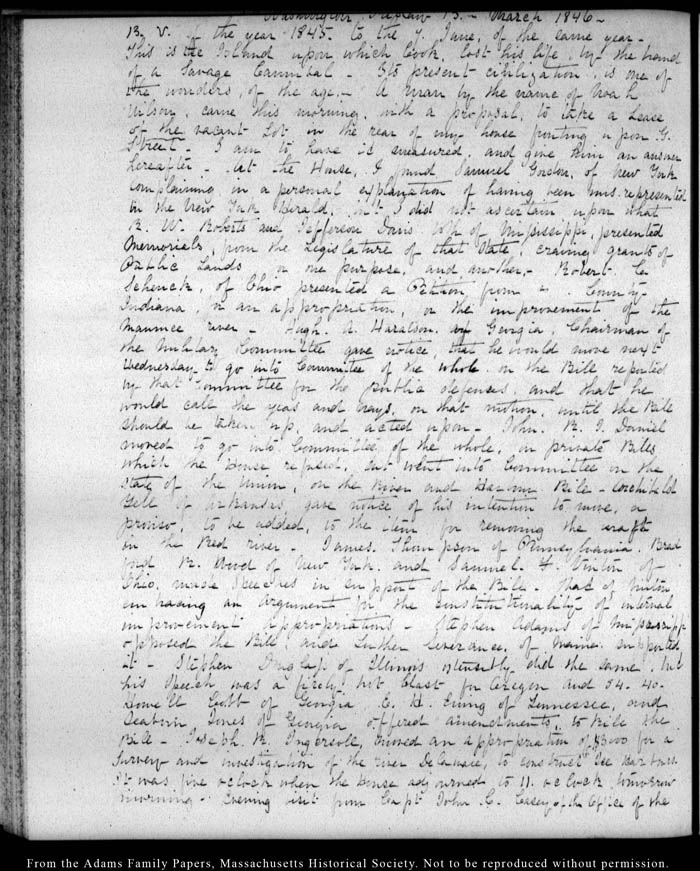 Washington Friday 13. March 1846 –
B. V. of the year 1845. to the 7. June, of the same year –
This is the Island upon which Cook, lost his life, by the hand
of a Savage Cannibal – Its present civilization, is one of
the wonders, of the age, – A man by the name of Noah
Wilson, came this morning, with a proposal, to take a Lease
of the vacant Lot in the rear of my house fronting upon G.
Street – I am to have it measured, and give him an answer
hereafter – At the House, I found Samuel Gordon, of New York
complaining in a personal explanation of having been misrepresented
in the New York Herald, but I did not ascertain upon what
R. W. Roberts and Jefferson Davis both of Mississippi, presented
Memorials, from the Legislature of that State, craving grants of
Public Lands for one purpose, and another – Robert C.
Schenck, of Ohio presented a Petition from County
Indiana, for an appropriation, for the improvement of the
Maumee river – Hugh A. Haralson of Georgia, Chairman of
the Military Committee gave notice, that he would move next
Wednesday to go into Committee of the whole on the Bill reported
by that Committee for the public defences, and that he
would call the yeas and nays, on that motion, until the Bill
should be taken up, and acted upon – John. R. J. Daniel
moved to go into Committee of the whole, on private Bills
which the House refused, but went into Committee on the
state of the Union, on the River and Harbour Bill – Archibald
Yell of Arkansas, gave notice of his intention to move, a
proviso, to be added, to the item for removing the raft
in the Red river – James Thompson of Pennsylvania. Brad
ford R. Wood of New York. and Samuel F. Vinton of
Ohio, made Speeches in support of the Bill – That of Vinton
embracing an argument for the constitutionality of internal
improvement appropriations – Stephen Adams of Mississippi
opposed the Bill, and Luther Severance, of Maine supported
it – Stephen Douglas of Illinois ostensibly did the same, but
his Speech was a fiery hot blast for Oregon and 54. 40.
Howell Cobb of Georgia, E. H. Ewing of Tennessee, and
Seaborn Jones of Georgia offered amendments, to the
Bill – Joseph. R. Ingersoll, moved an appropriation of $3000 for a
Survey and investigation of the river Delaware, to construct Ice harbours.
It was five o'clock when the house adjourned to 11. o'clock tomorrow
morning – Evening visit from Capt John. C. Casey of the Office of the
From the Adams Family Papers, Massachusetts Historical Society. Not to be reproduced without permission.